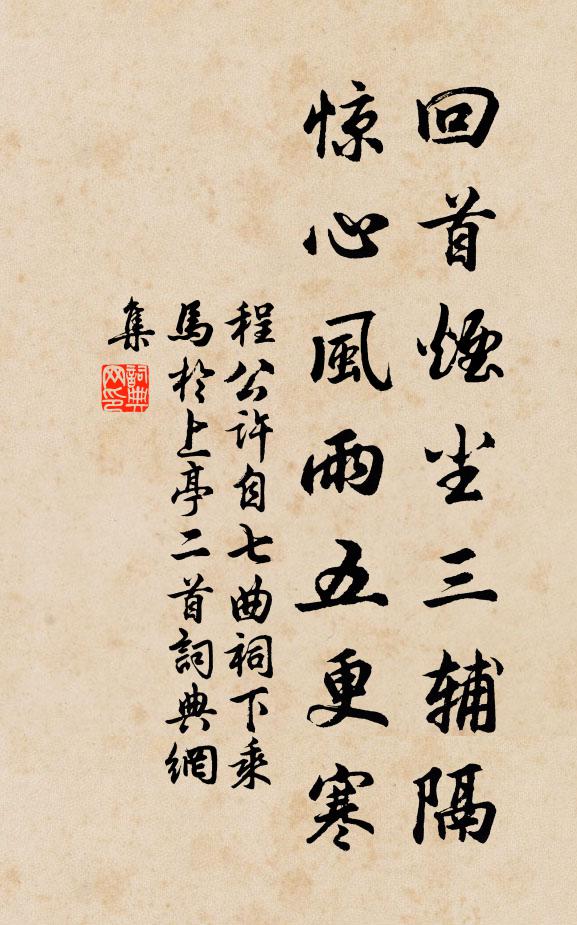 回首煙尘三辅隔
惊心風雨五更寒
程公许自七曲祠下乘
馬於上亭二首詞典網
集
詞典
网印